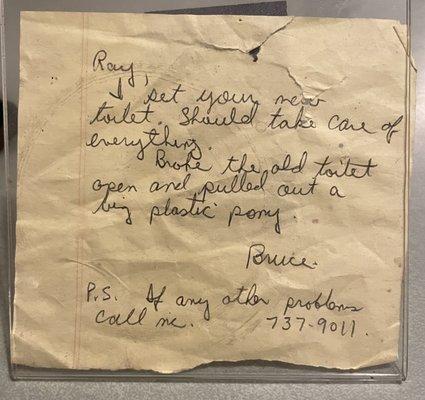 Ray,
I set your new
toilet. Should take care of
everything.
Broke the old toilet
open and pulled out a
big plastic pony.
Bruce.
P.S. If any other problems
call me. 737-9011.